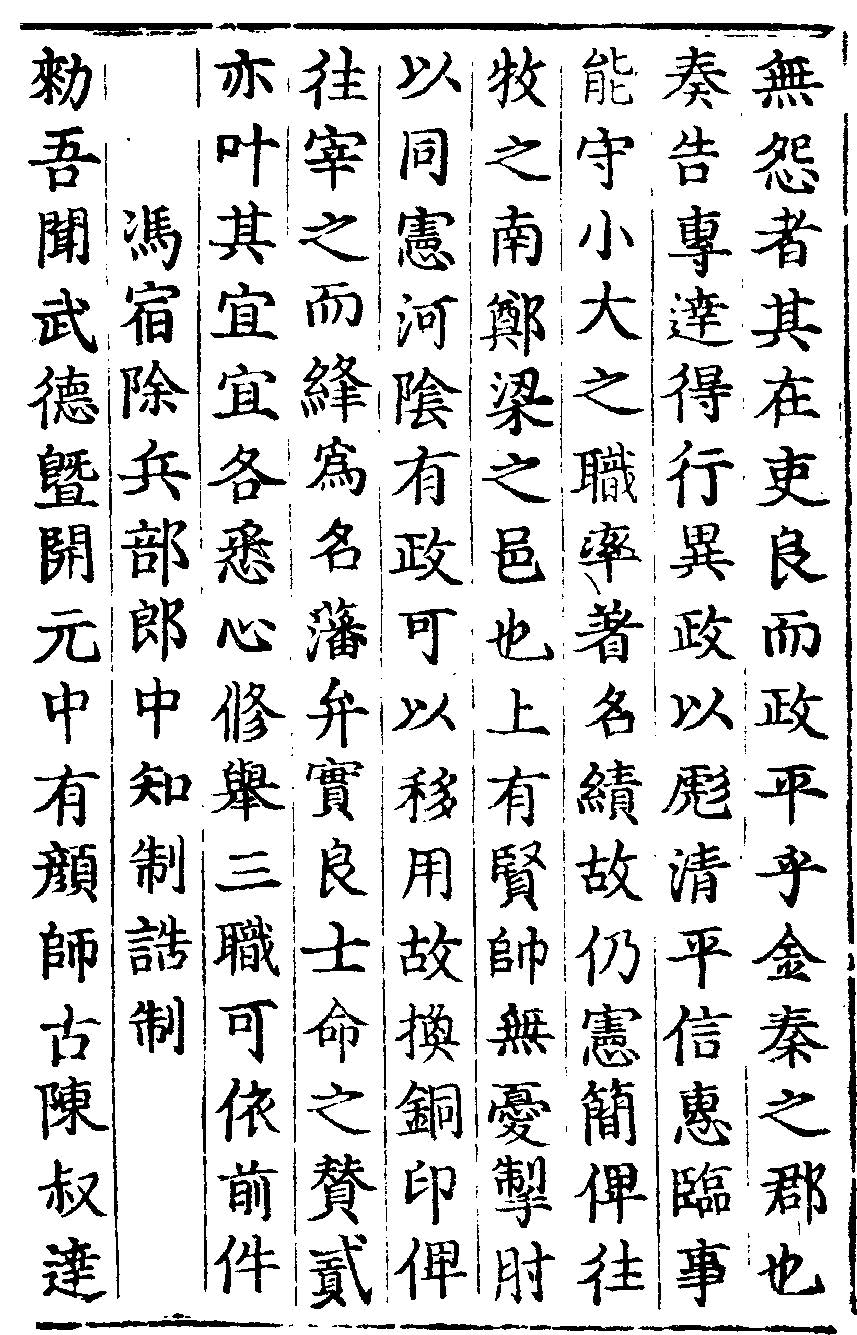 無怨者其在吏良而政平乎金秦之郡也
奏告專達得行異政以彪清平信惠臨事
能守小大之職率著名績故仍憲簡俾往
牧之南鄭梁之邑也上有賢帥無憂掣肘
以同憲河陰有政可以移用故換銅印俾
往宰之而絳爲名藩弁實良士命之贊貳
亦叶其宜宜各悉心修舉三職可依前件
馮宿除兵部郎中知制誥制
勑吾聞武德曁開元中有顔師古陳叔達